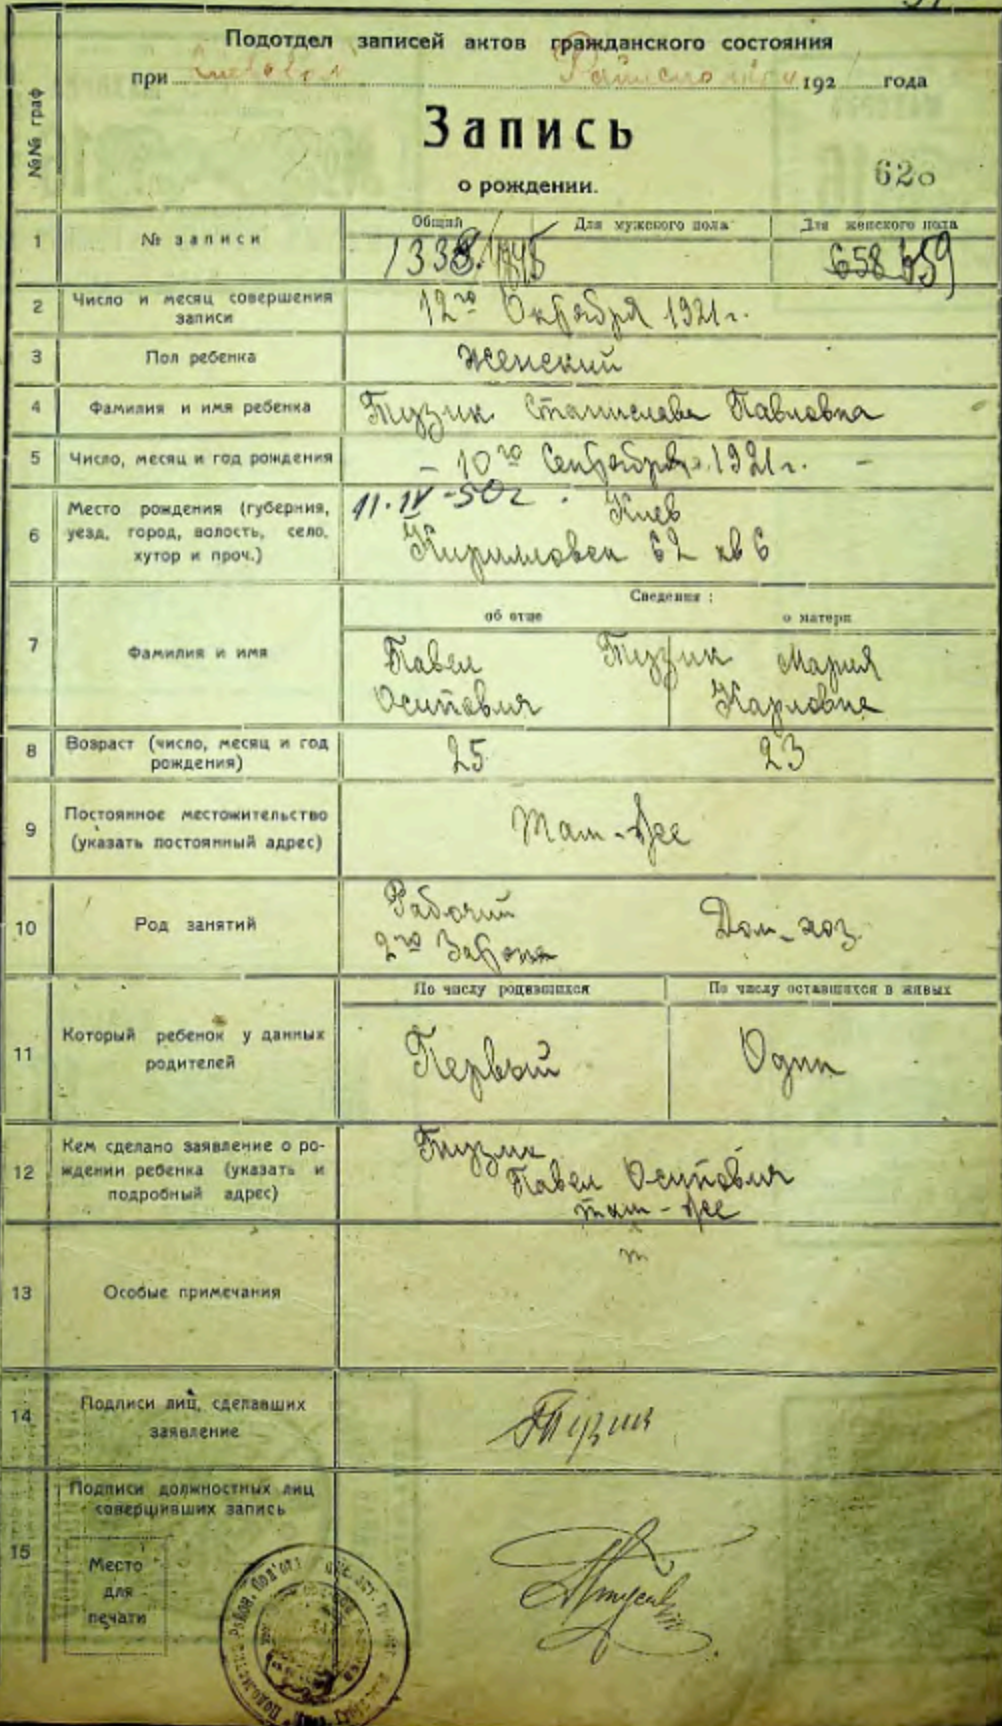 Подотдел записей актов гражданского состояния
при 192 года
Запись
о рождении.
628
№№ граф
Общий Для мужского пола Для женского пола
1 № записи 1338 658 659
2 Число и месяц совершения записи 12го Октября 1921 г.
3 Пол ребенка Женский
4 Фамилия и имя ребенка Тузик Станислава Павловна
5 Число, месяц и год рождения – 10го Сентября 1921 г. –
6 Место рождения (губерния,
уезд, город, волость, село,
хутор и проч.)
11·IV-50г. Киев
Кирилловск 62 кв 6
Сведения:
об отце о матери
7 Фамилия и имя
Павел Тузик Мария
Осипович Карловна
8 Возраст (число, месяц и год
рождения)
25 23
9 Постоянное местожительство
(указать постоянный адрес)
Там-же
10 Род занятий
Рабочий Дом-хоз.
2го
По числу родившихся По числу оставшихся в живых
11 Который ребенок у данных
родителей
Первый Один
12 Кем сделано заявление о ро-
ждении ребенка (указать и
подробный адрес)
Тузик
Павел Осипович
там-же
13 Особые примечания
14 Подписи лиц, сделавших
заявление
Тузик
15 Подписи должностных лиц
совершивших запись
Место
для
печати